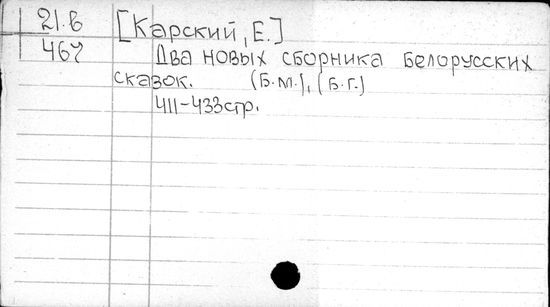 21.б
467
[Карский, Е.]
Два новых сборника белорусских
сказок. (Б.м.), (Б.г.)
411-433стр.